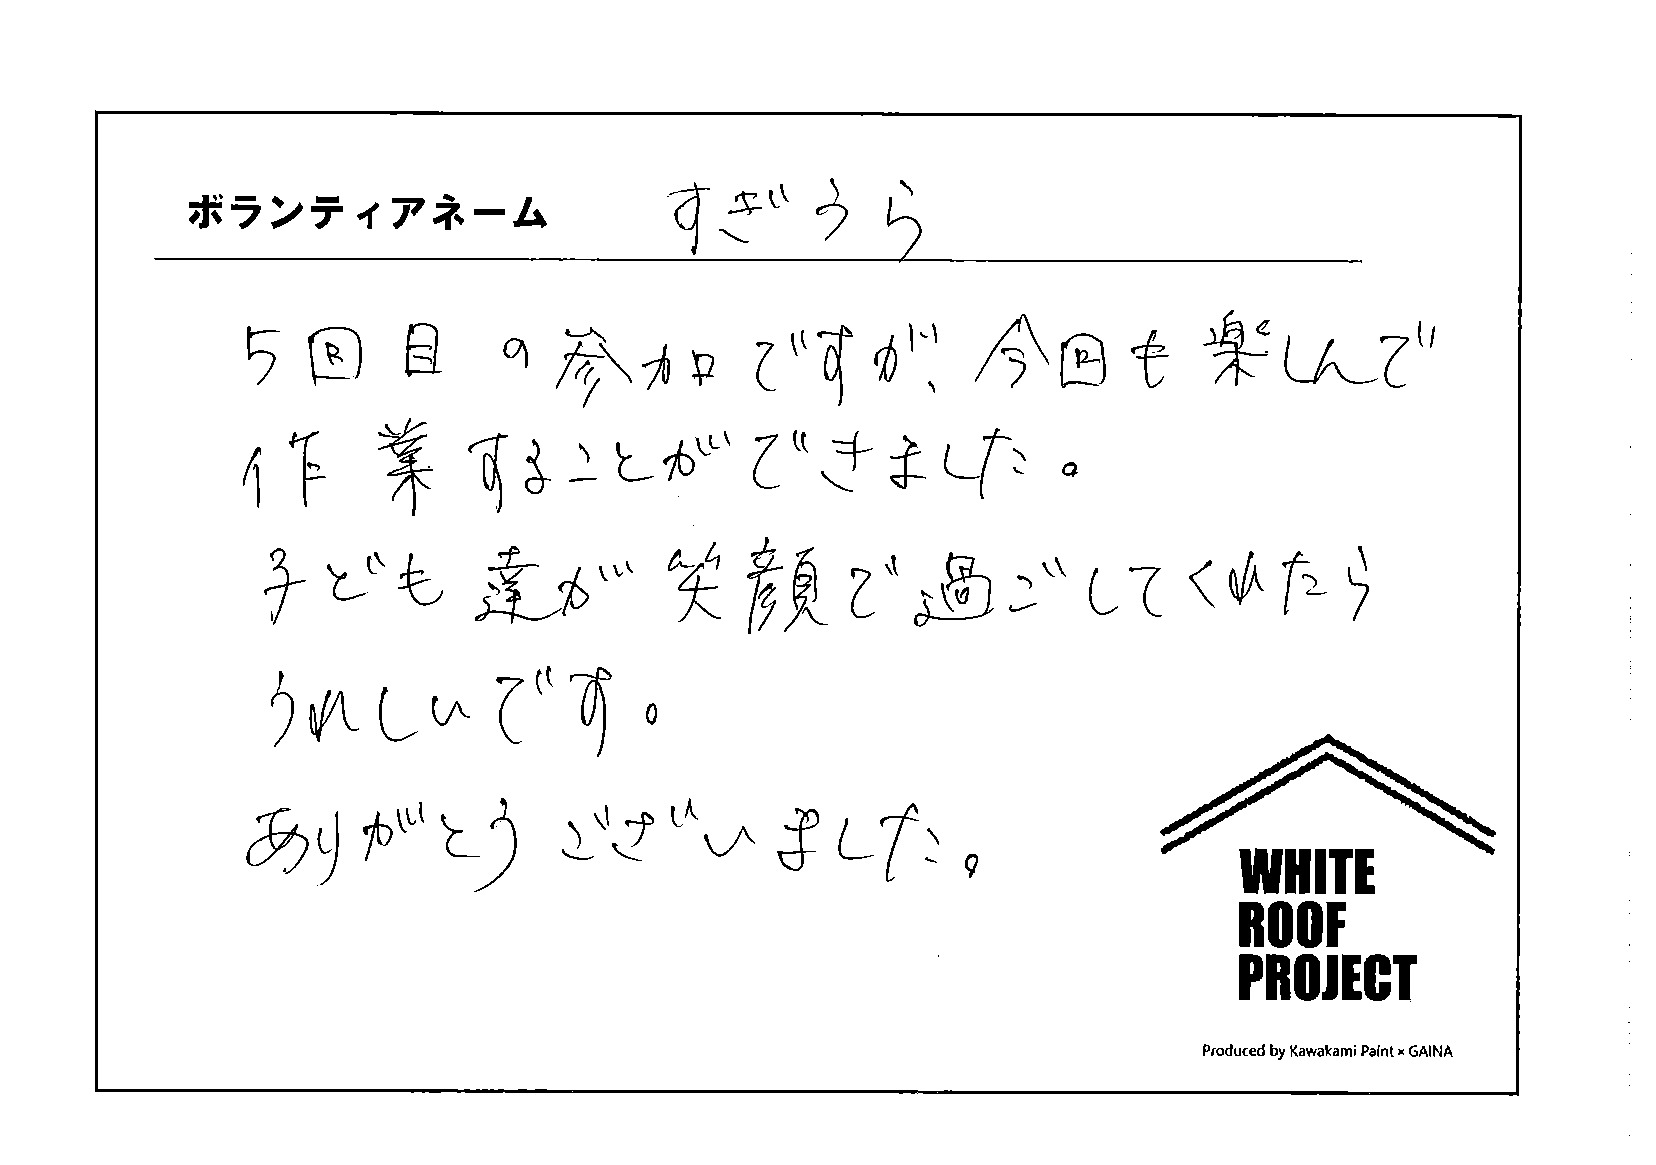 ボランティアネーム すぎうら
5回目の参加ですが、今回も楽しんで
作業することができました。
子ども達が笑顔で過ごしてくれたら
うれしいです。
ありがとうございました。
WHITE
ROOF
PROJECT
Produced by Kawakami Paint × GAINA